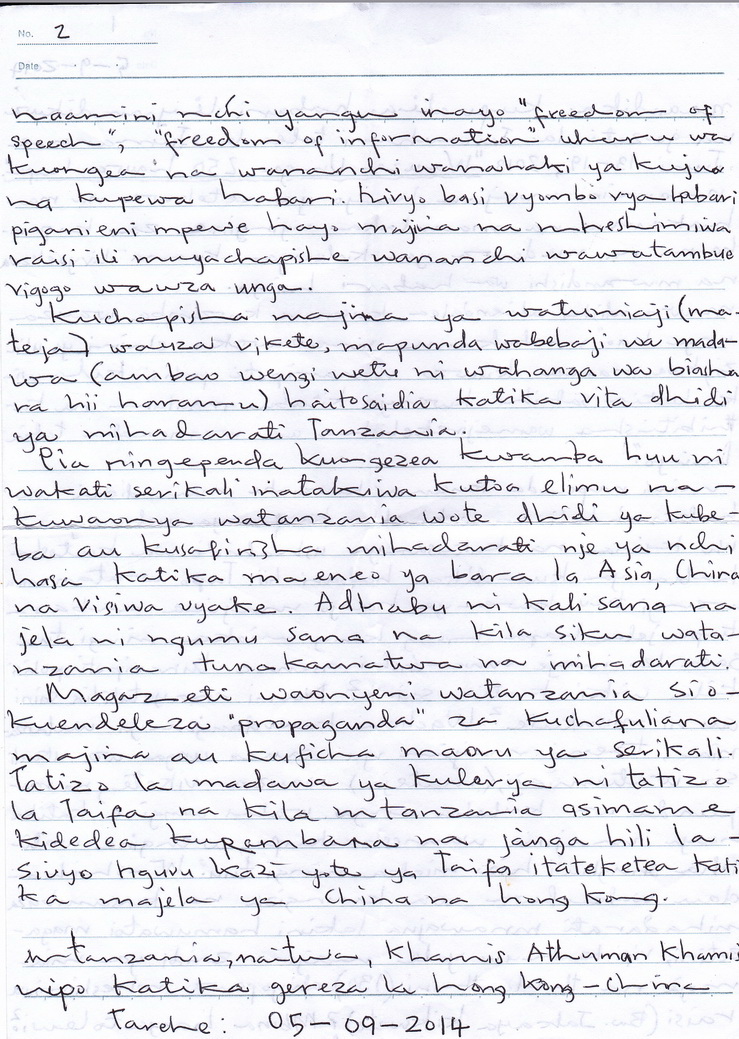 No. 2
Date
naamini nchi yangu inayo "freedom of
speech", "freedom of information" uhuru wa
kuongea na wananchi wanahaki ya kujua
na kupewa habari. hivyo basi vyombo vya habari
piganieni mpewe hayo majina na mheshimiwa
raisi ili muyachapishe wananchi wawatambue
vigogo wauza unga.
Kuchapisha majina ya watumiaji (ma-
teja) wauza vikete, mapunda wabebaji wa mada-
wa (ambao wengi wetu ni wahanga wa biasha
ra hii haramu) haitosaidia katika vita dhidi
ya mihadarati Tanzania.
Pia ningependa kuongezea kwamba huu ni
wakati serikali inatakiwa kutoa elimu na-
kuwaonya watanzania wote dhidi ya kube-
ba au kusafirisha mihadarati nje ya nchi
hasa katika maeneo ya bara la Asia, China
na visiwa vyake. Adhabu ni kali sana na
jela ni ngumu sana na kila siku wata-
nzania tunakamatwa na mihadarati.
Magazeti waonyeni watanzania sio-
kuendeleza "propaganda" za kuchafuliana
majina au kuficha maovu ya serikali.
Tatizo la madawa ya kulevya ni tatizo
la Taifa na kila mtanzania asimame
kidedea kupambana na janga hili la-
sivyo nguvu kazi yote ya Taifa itateketea kati
ka majela ya China na hong kong.
mtanzania, naitwa, Khamis Athuman Khamis
nipo katika gereza la hong kong - China
Tarehe: 05-09-2014